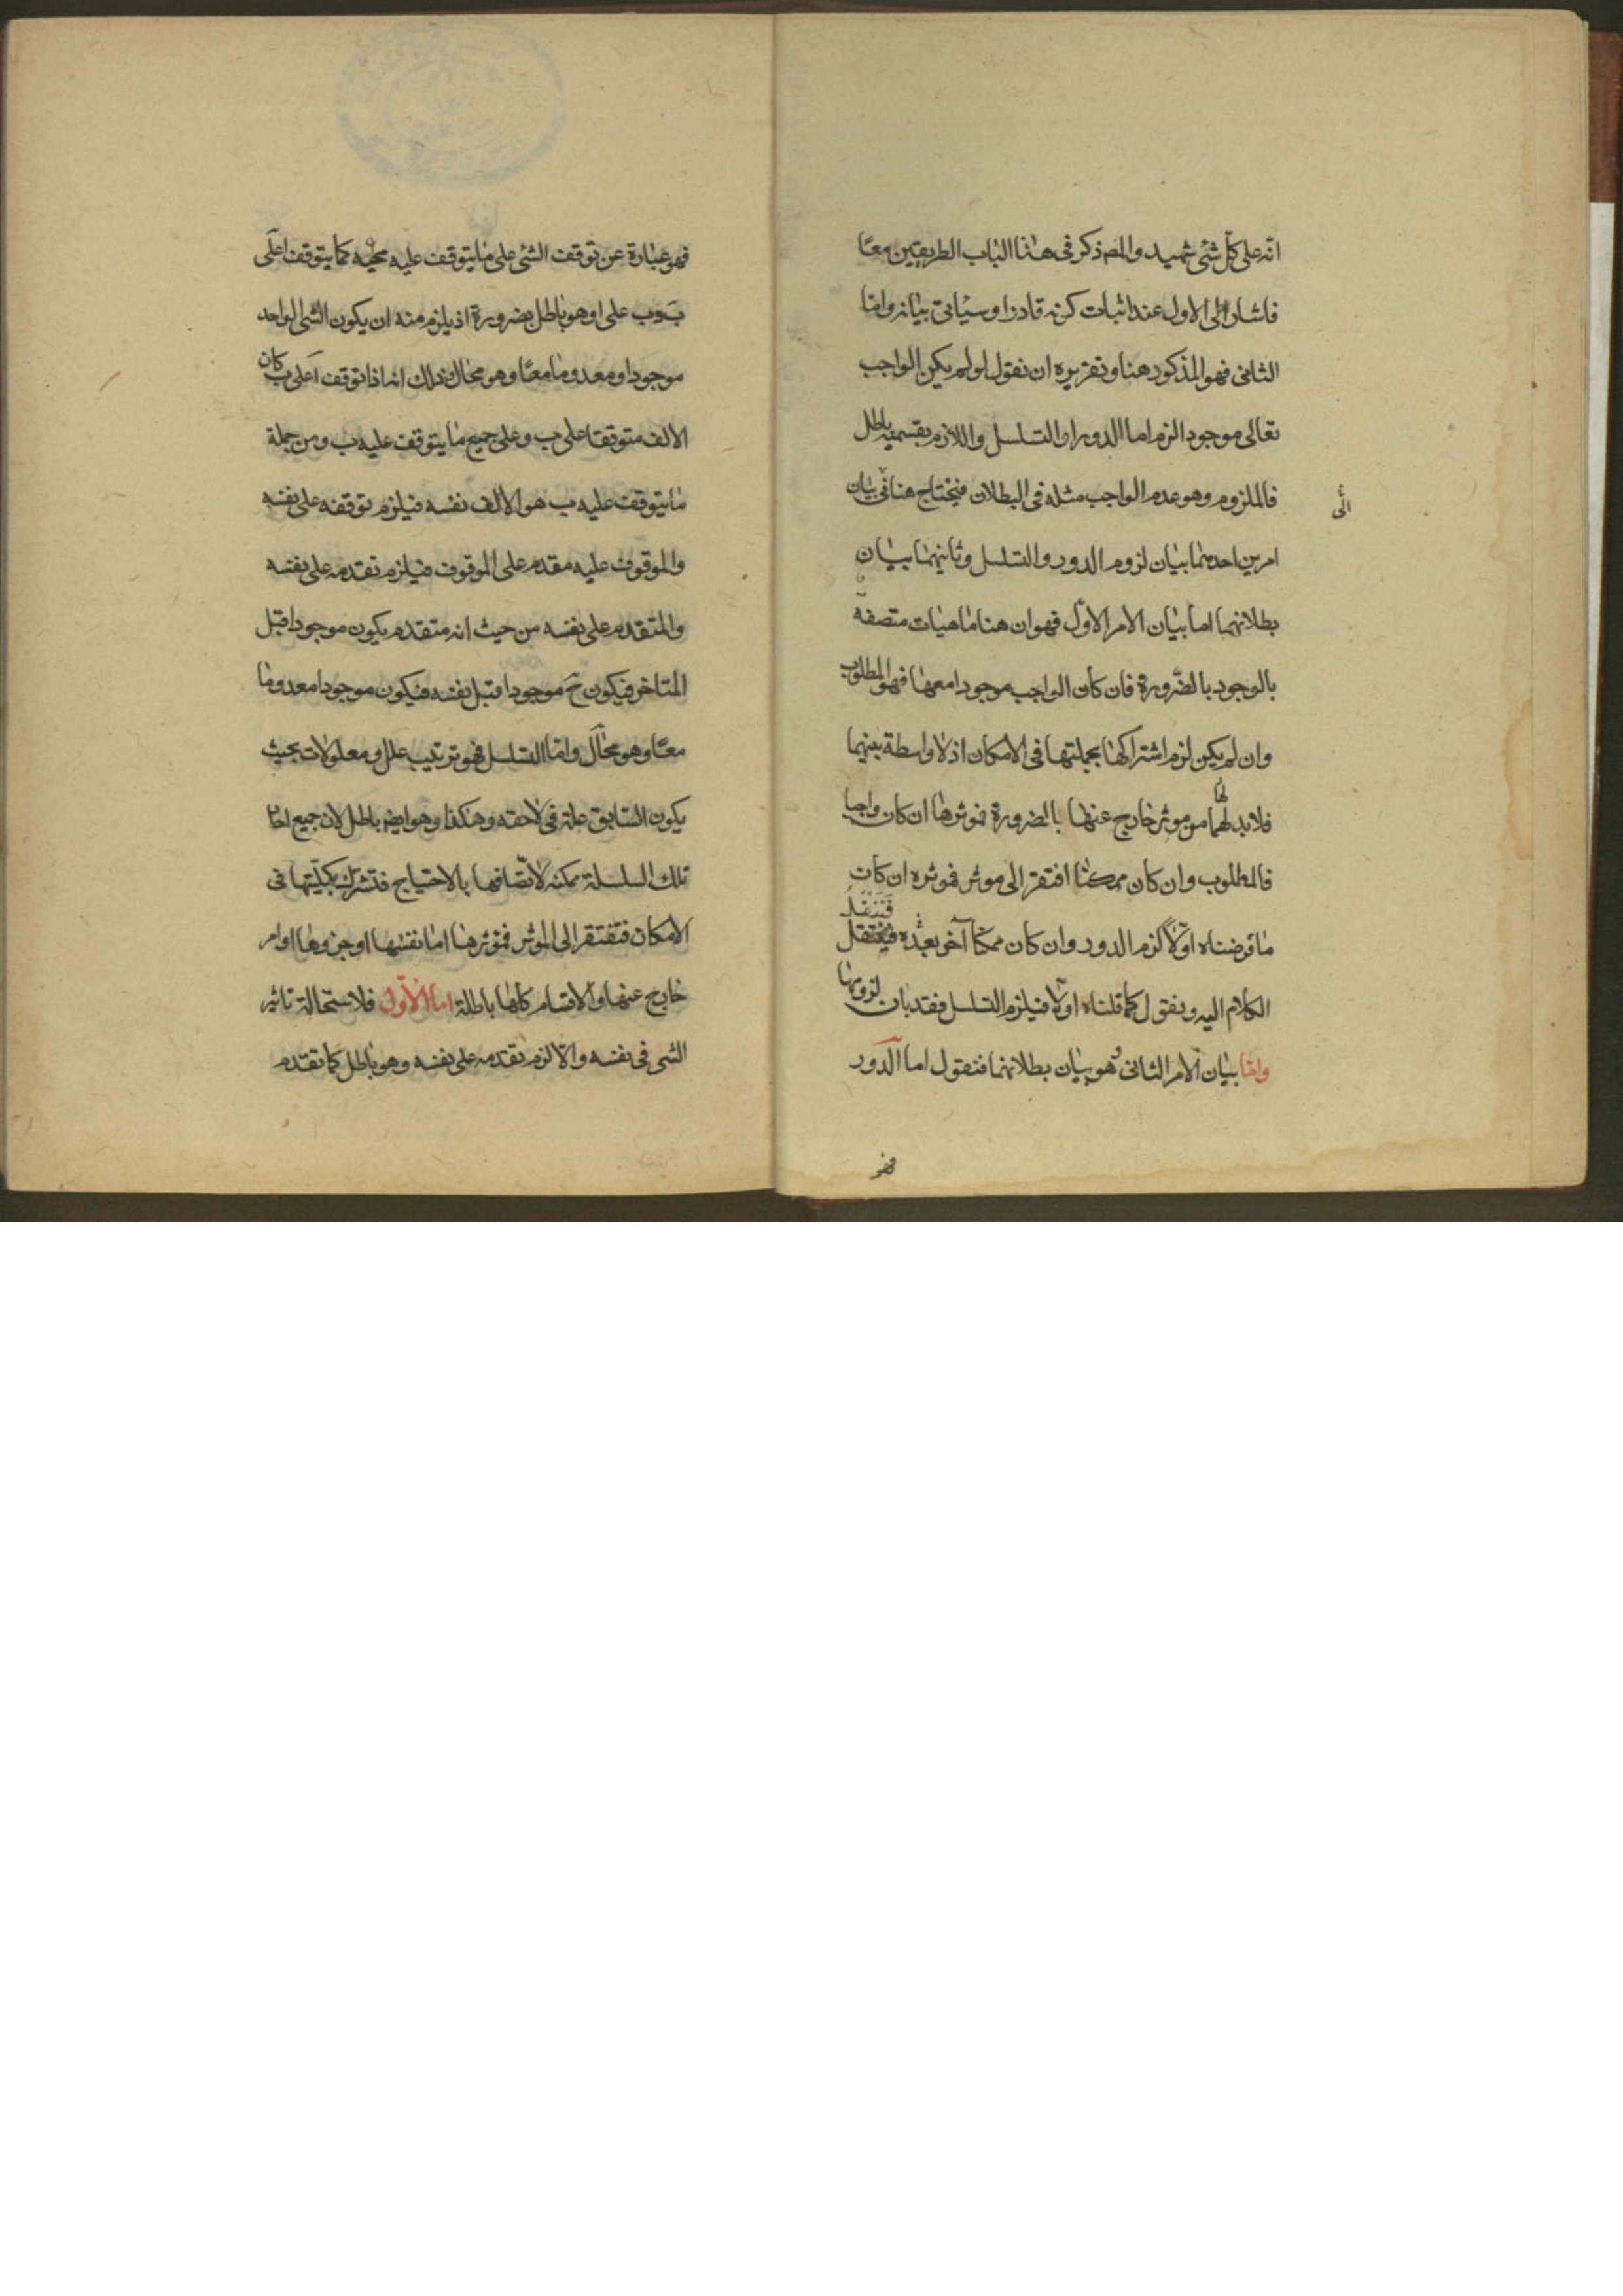 انّه على كلّ شئ شهيد والمص ذكر فى هذا الباب الطريقين معًا
فاشار الى الاول عند اثبات كونه قادرا وسيأتى بيانه وامّا
الثانى فهو المذكور هنا وتقريره ان نقول لو لم يكن الواجب
تعالى موجودا لزم اما الدور او التسلسل واللازم بقسميه باطل
فالملزوم وهو عدم الواجب مثله فى البطلان فيحتاج هنا فى بيان
الى
امرين احدهما بيان لزوم الدور والتسلسل وثانيهما بيان
بطلانهما اما بيان الامر الاوّل فهو ان هنا ماهيات متصفة
بالوجود بالضّرورة فان كان الواجب موجودا معها فهو المطلوب
وان لم يكن لزم اشتراكها بجملتها فى الامكان اذ لا واسطة بينهما
لها
فلابد لهما من موثر خارج عنها بالضرورة فموثرها ان كان واجبا
فالمطلوب وان كان ممكنا افتقر الى موثر فموثره ان كان
فَنَنْقُلُ
ما فرضناه اوّلًا لزم الدور وان كان ممكنًا آخر بعده فينتقل
الكلام اليه ونقول كما قلناه اولًا فيلزم التسلسل فقد بان لزومها
وامّا بيان الامر الثانى وهو بيان بطلانهما فنقول اما الدور
فهو
فهو عبارة عن توقف الشئ على ما يتوقف عليه كما يتوقف ا على
ب وب على ا وهو باطل بضرورة اذ يلزم منه ان يكون الشى الواحد
موجودا ومعدوما معًا وهو محال ذلك انه اذا توقف ا على ب كان
الالف متوقفا على ب وعلى جميع ما يتوقف عليه ب ومن جملة
ما يتوقف عليه ب هو الالف نفسه فيلزم توقفه على نفسه
والموقوف عليه مقدم على الموقوف فيلزم تقدمه على نفسه
والمتقدم على نفسه من حيث انه متقدم يكون موجودا قبل
المتاخر فيكون ح موجودا قبل نفسه فيكون موجودا معدوما
معًا وهو محال وامّا التسلسل فهو ترتيب علل ومعلولات بحيث
يكون السّابق علة فى لاحقه وهكذا وهو ايضا باطل لان جميع احاد
تلك السلسلة ممكنة لاتّصافها بالاحتياج فتشترك بكليّتها فى
الامكان فتفتقر الى الموثر فموثرها اما نفسها او جزوها او امر
خارج عنها والاقسام كلها باطلة اما الاوّل فلاستحالة تاثير
الشى فى نفسه والّا لزم تقدمه على نفسه وهو باطل كما تقدم